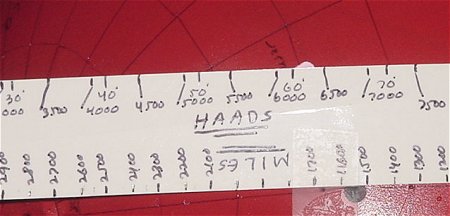 30' 40' 50' 60' 70'
000 3500 4000 4500 5000 5500 6000 6500 7000 7500
HAADS
MILES
2900 2800 2700 2600 2500 2400 2300 2200 2100 1700 1600 1500 1400 1300 1200